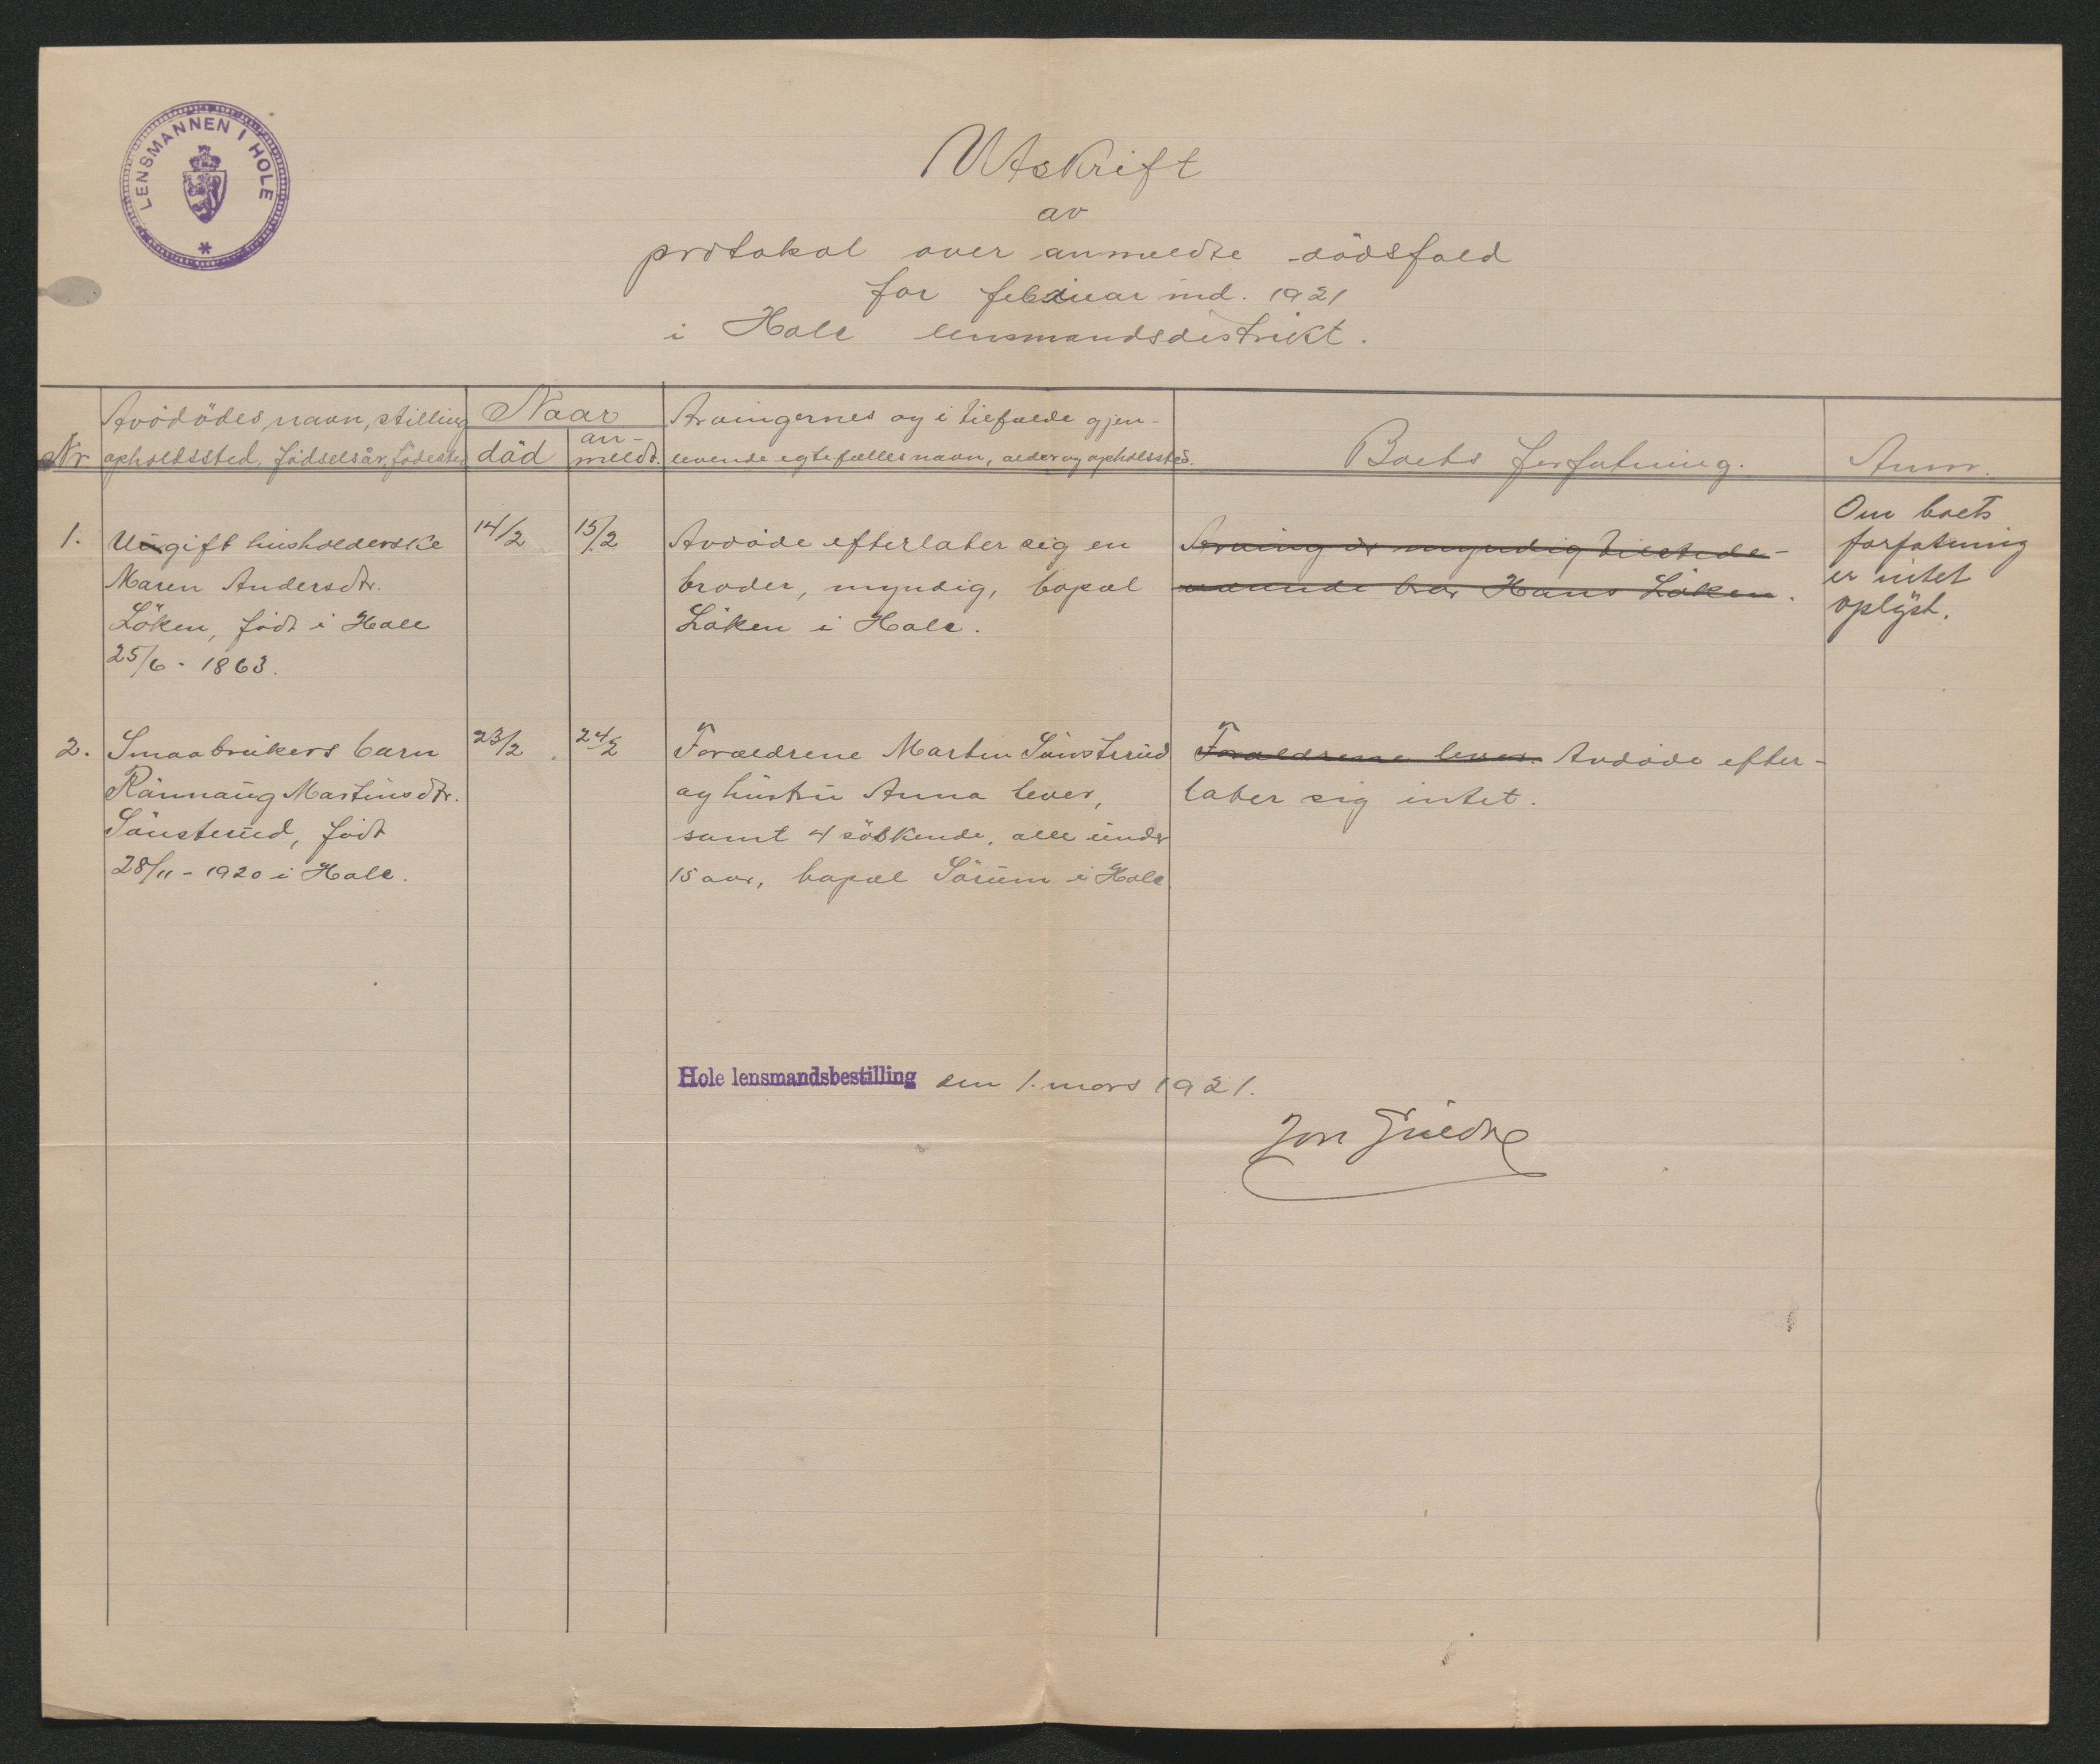 LENSMANNEN I HOLE
Utskrift
av
protokol over anmeldte dödsfald
for februar md. 1921
i Hole lensmandsdistrikt.
Nr
Avdödes navn, stilling
opholdssted, födselsår, födested
Naar
död
an-
meldt.
Arvingernes og i tilfælde gjen-
levende egtefælles navn, alder og opholdssted.
Boets forfatning.
Anm.
1.
Ungift husholderske
Maren Andersdtr.
Löken, födt i Hole
25/6 - 1863.
14/2
15/2
Avdöde efterlater sig en
broder, myndig, bopæl
Löken i Hole.
Arving er myndig tilstede-
værende bror Hans Löken.
Om boets
forfatning
er intet
oplyst.
2.
Smaabrukers barn
Rönnaug Martinsdtr.
Sönsterud, födt
28/11 - 1920 i Hole.
23/2
24/2
Forældrene Martin Sönsterud
og hustru Anna lever,
samt 4 söskende, alle under
15 aar, bopæl Sörum i Hole
Forældrene lever. Avdöde efter-
later sig intet.
Hole lensmandsbestilling den 1. mars 1921.
Jon